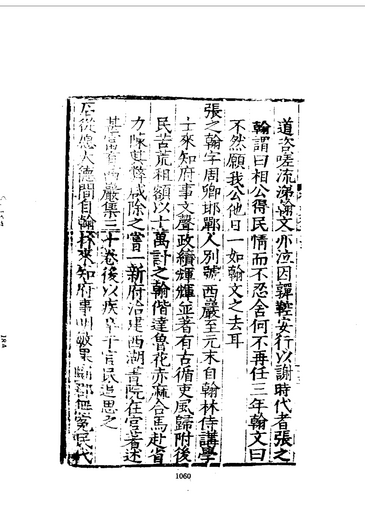 道咨嗟流涕翰文亦泣因韗鞋安行以謝時代者張之
翰謂曰相公得民情而不忍舍何不再任三年翰文曰
不然願我公他日一如翰文之去耳
張之翰字周卿邯鄲人別號西巖至元末自翰林侍講學
士來知府事文聲政績輝輝並著有古循吏風歸附後
民苦荒租額以十萬計之翰偕達魯花赤麻合馬赴省
力陳其弊咸除之嘗一新府治建西湖書院在官著述
甚富有西巖集三十卷後以疾卒于官民追思之
從應大德間自翰林來知府事明敏果斷郡無冤民代
1060